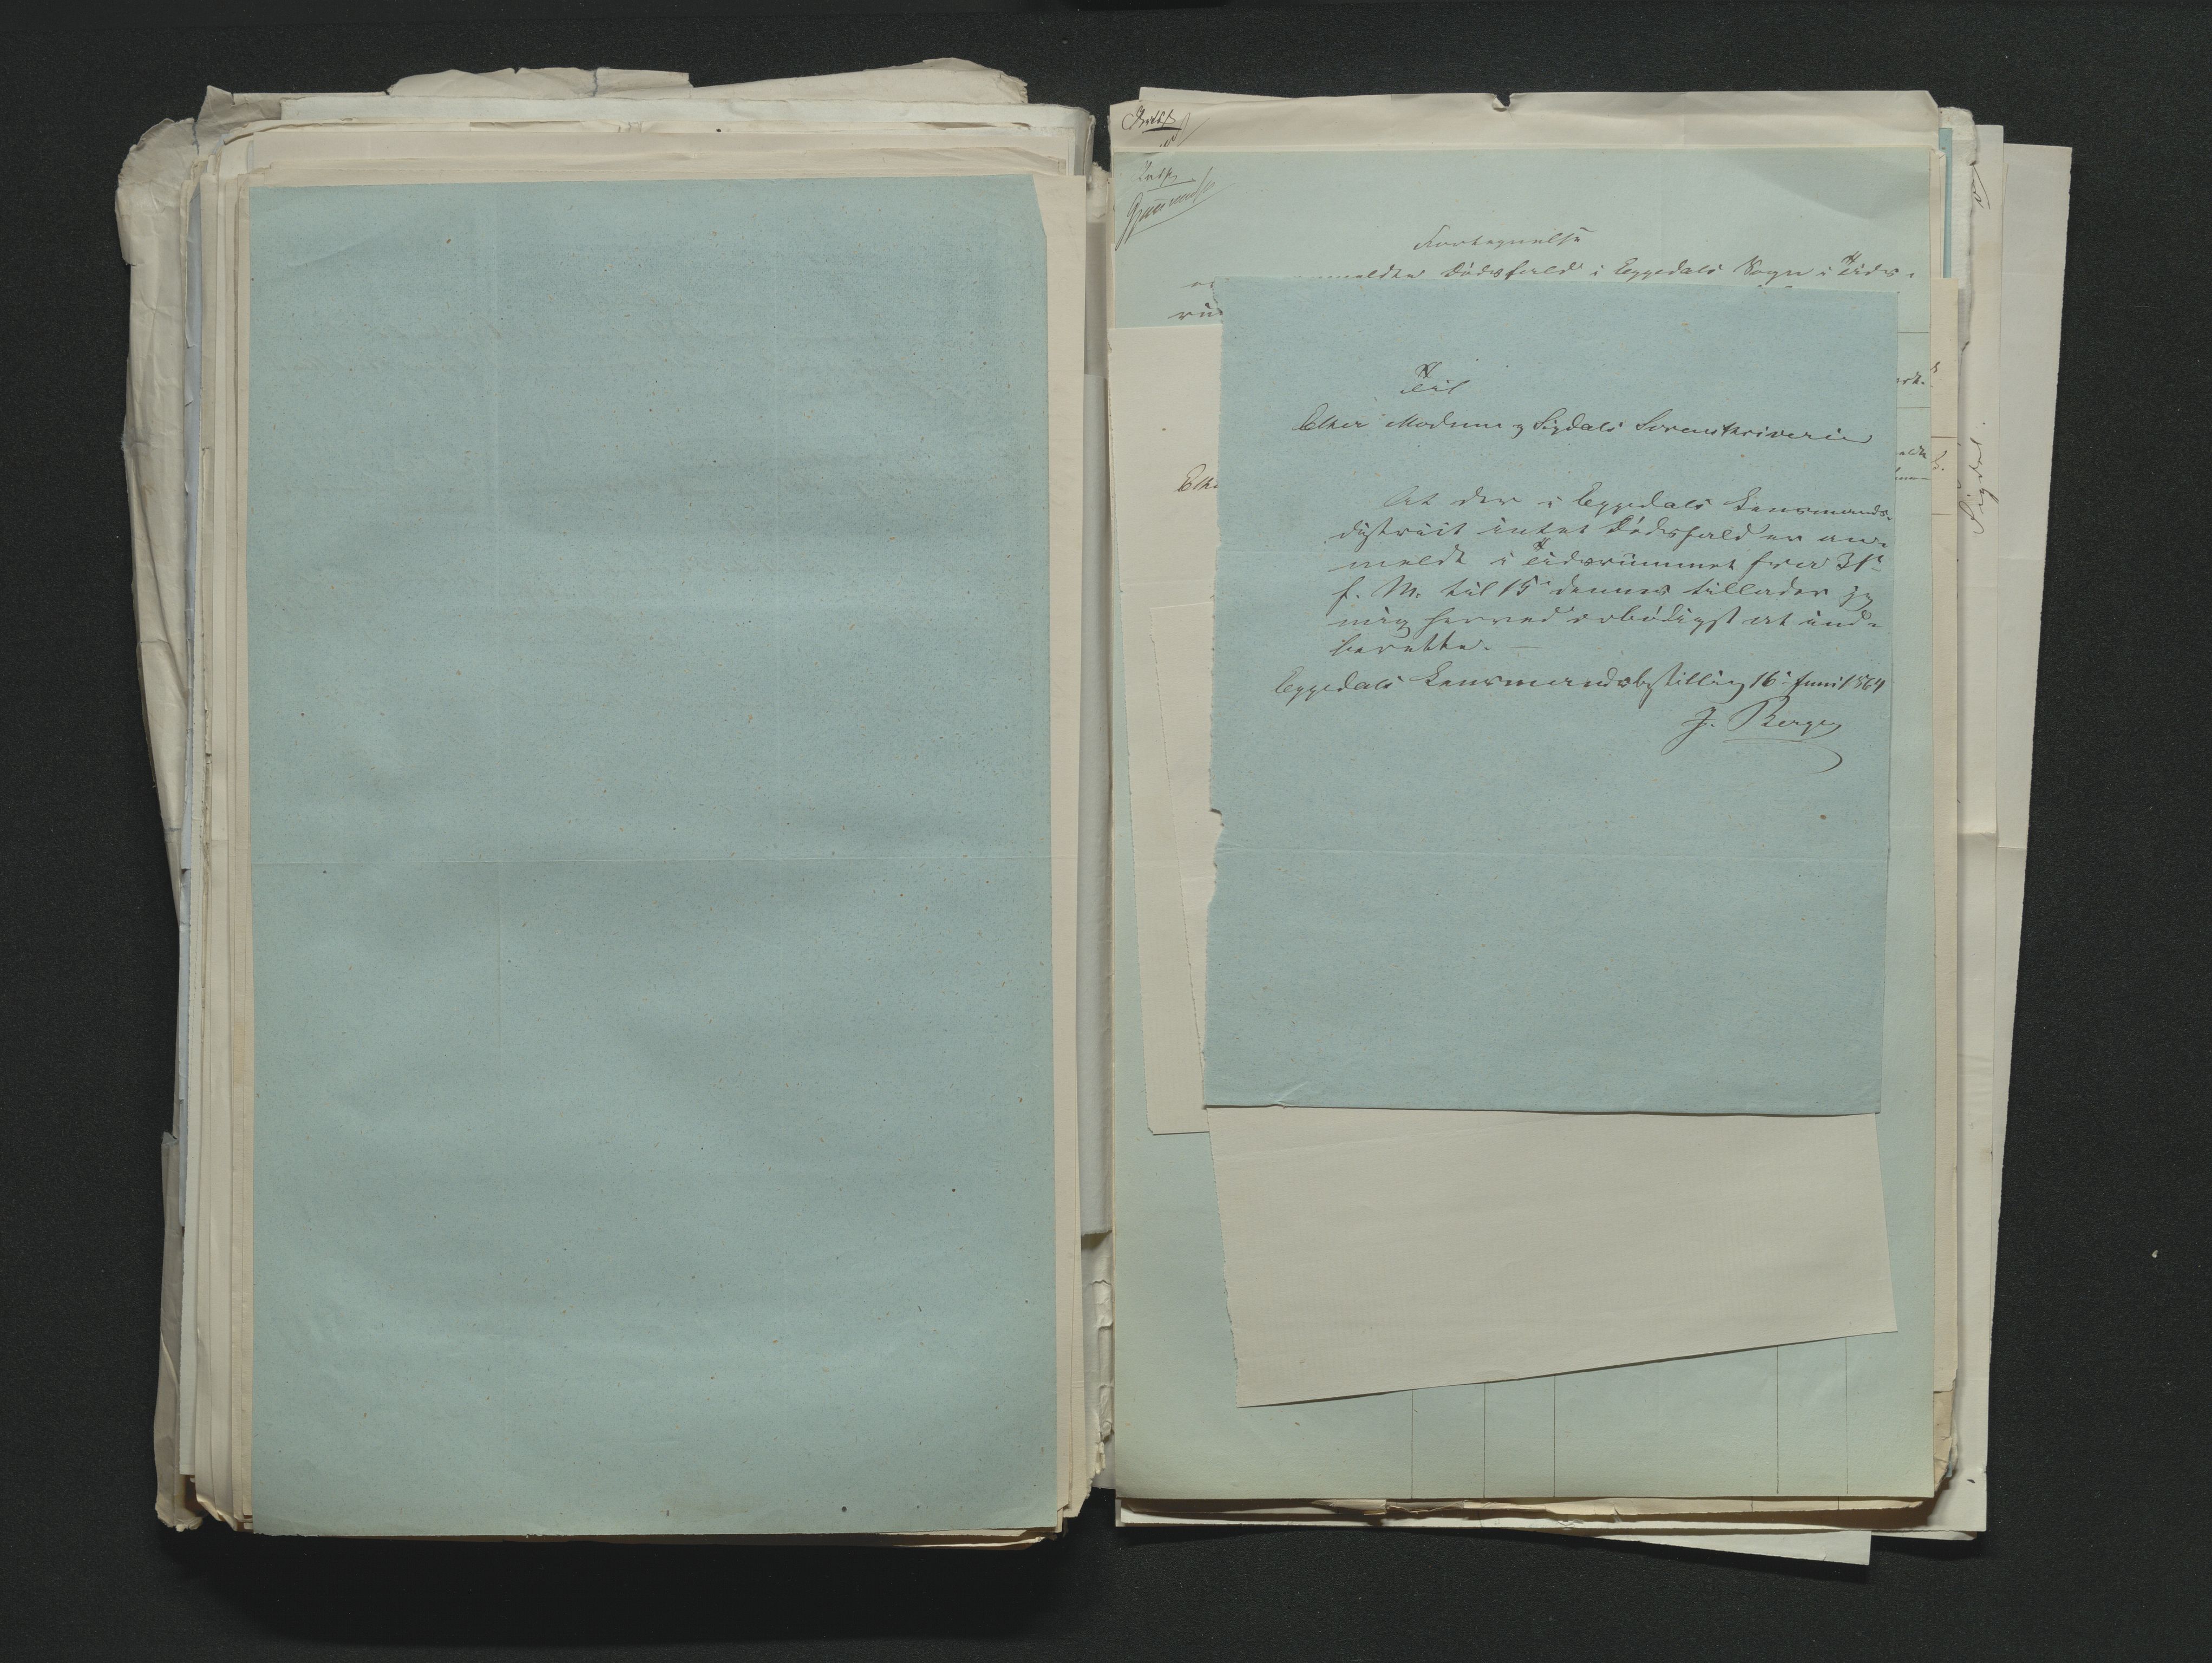 Fortegnelse
anmeldte Dødsfald i Eggedals Sogn i Tids-
Til
Eker Modum og Sigdals Sorenskriverie
At der i Eggedals Lensmands-
distrikt intet Dødsfald er an-
meldt i Tidsrummet fra 31te
f. M. til 15de dennes tillader jeg
mig herved ærbødigst at ind-
berette. —
Eggedals Lensmandsbestilling 16de Juni 1864
J. Bergen
Sigdal.